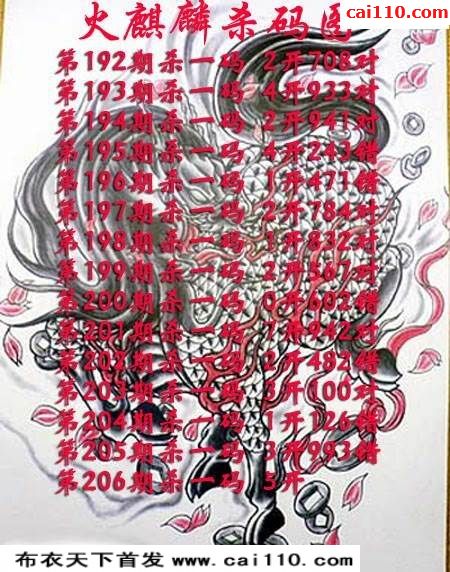 cai110.com
火麒麟杀码
第192期杀一码 2开708对
第193期杀一码 4开933对
第194期杀一码 2开941对
第195期杀一码 4开243错
第196期杀一码 1开471错
第197期杀一码 2开784对
第198期杀一码 1开832对
第199期杀一码 2开567对
第200期杀一码 0开602错
第201期杀一码 7开942对
第202期杀一码 2开482错
第203期杀一码 3开100对
第204期杀一码 1开126错
第205期杀一码 3开993错
第206期杀一码 5开
布衣天下首发 www.cai110.com